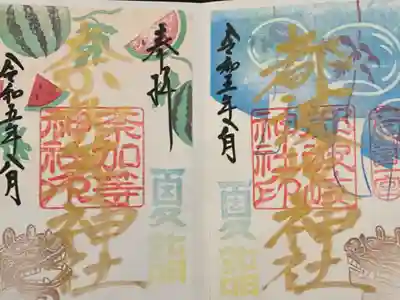 都波岐神社
都波岐
神社印
令和五年八月
夏詣
奉拝
奈加等神社
奈加等
神社印
令和五年八月
夏詣